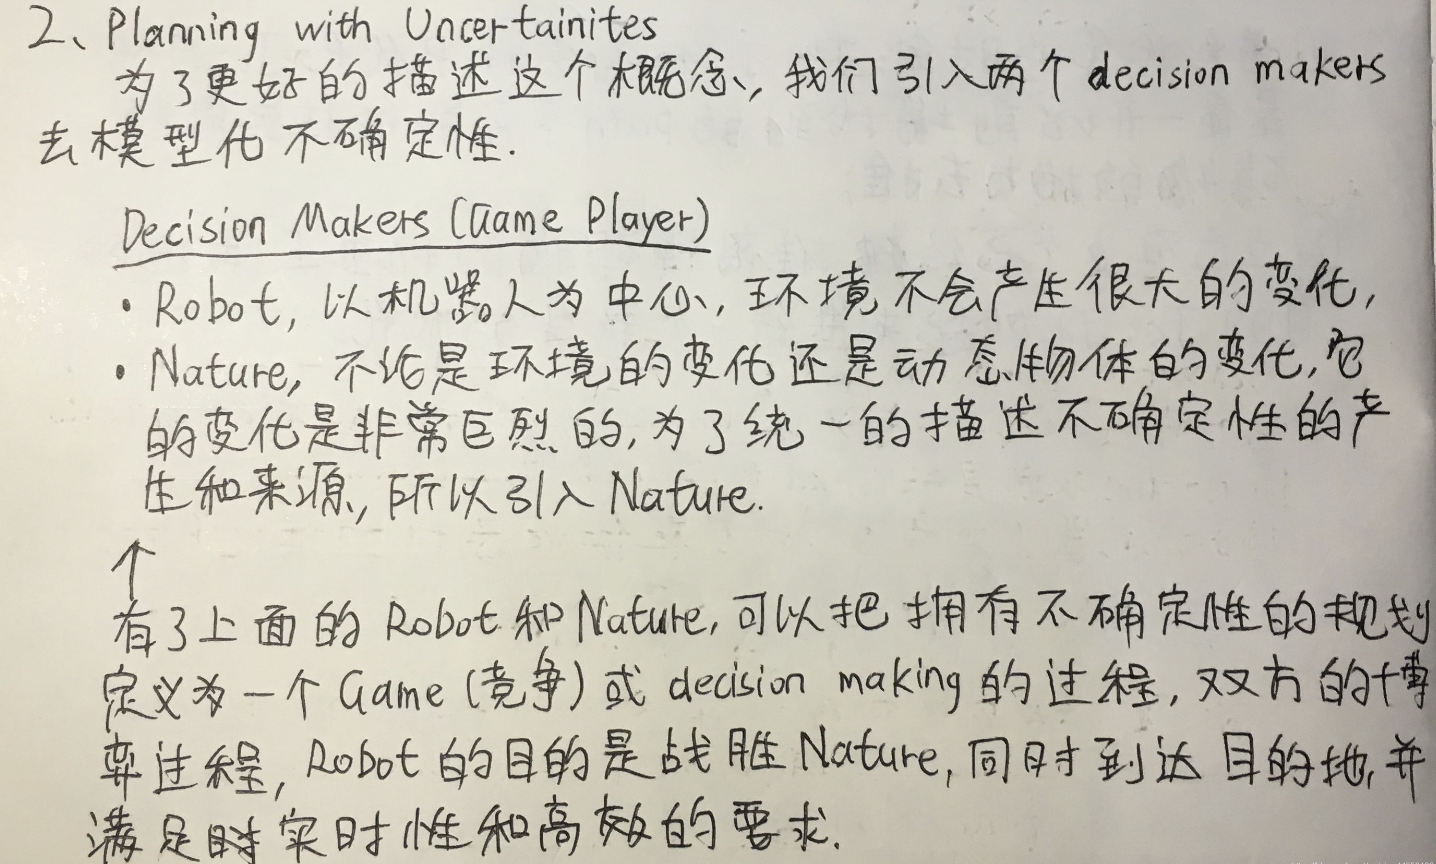 2、Planning with Uncertainites
为了更好的描述这个概念、,我们引入两个decision makers
去模型化不确定性.
Decision Makers (Game Player)
· Robot, 以机器人为中心、, 环境不会产生很大的变化,
· Nature, 不论是环境的变化还是动态物体的变化,它
的变化是非常巨烈的,为了统一的描述不确定性的产
生和来源,所以引入Nature.
↑
有了上面的Robot和Nature,可以把拥有不确定性的规划
定义为一个Game(竞争)或decision making的过程,双方的博
弈过程,Robot的目的是战胜Nature,同时到达目的地,并
满足实时性和高效的要求.